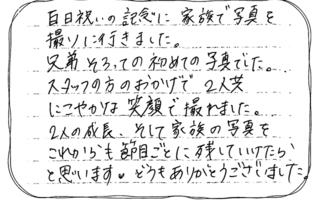 百日祝いの記念に家族で写真を
撮りに行きました。
兄弟そろっての初めての写真でした。
スタッフの方のおかげで2人共
にこやかな笑顔で撮れました。
2人の成長、そして家族の写真を
これからも節目ごとに残していけたら
と思います♥どうもありがとうございました。